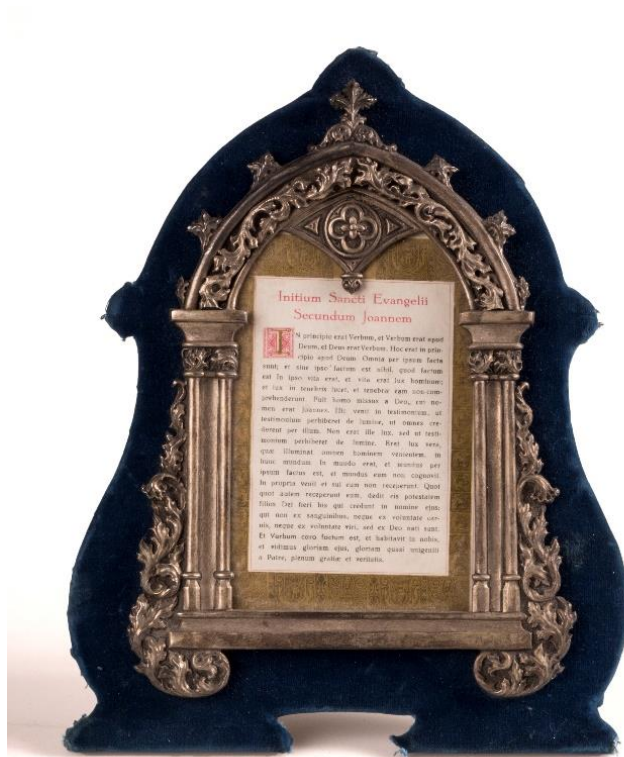 Initium Sancti Evangelii
Secundum Joannem
IN principio erat Verbum, et Verbum erat apud
Deum, et Deus erat Verbum. Hoc erat in prin-
cipio apud Deum. Omnia per ipsum facta
sunt; et sine ipso factum est nihil, quod factum
est. In ipso vita erat, et vita erat lux hominum;
et lux in tenebris lucet, et tenebræ eam non com-
prehenderunt. Fuit homo missus a Deo, cui no-
men erat Joannes. Hic venit in testimonium, ut
testimonium perhiberet de lumine, ut omnes cre-
derent per illum. Non erat ille lux, sed ut testi-
monium perhiberet de lumine. Erat lux vera,
quæ illuminat omnem hominem venientem in
hunc mundum. In mundo erat, et mundus per
ipsum factus est, et mundus eum non cognovit.
In propria venit et sui eum non receperunt. Quot-
quot autem receperunt eum, dedit eis potestatem
filios Dei fieri his qui credunt in nomine ejus;
qui non ex sanguinibus, neque ex voluntate car-
nis, neque ex voluntate viri, sed ex Deo nati sunt.
Et Verbum caro factum est, et habitavit in nobis,
et vidimus gloriam ejus, gloriam quasi unigeniti
a Patre, plenum gratiæ et veritatis.